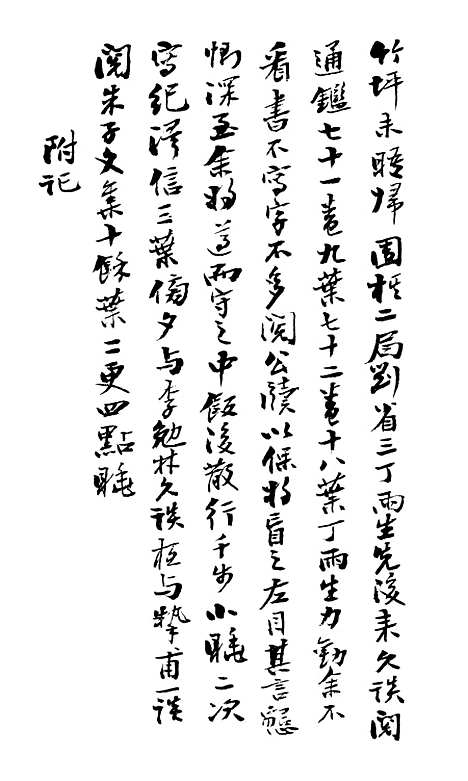 竹坪未晤歸圍棋二局劉省三丁雨生先後來久談閱
通鑑七十一卷九葉七十二卷十八葉丁雨生力勸余不
看書不寫字不多閱公牘以保將盲之左目其言懇
惻深至余將遵而守之中飯後散行千步小睡二次
寫紀澤信三葉傍夕與李勉林久談夜與摯甫一談
閱朱子文集十餘葉二更四點睡
附記